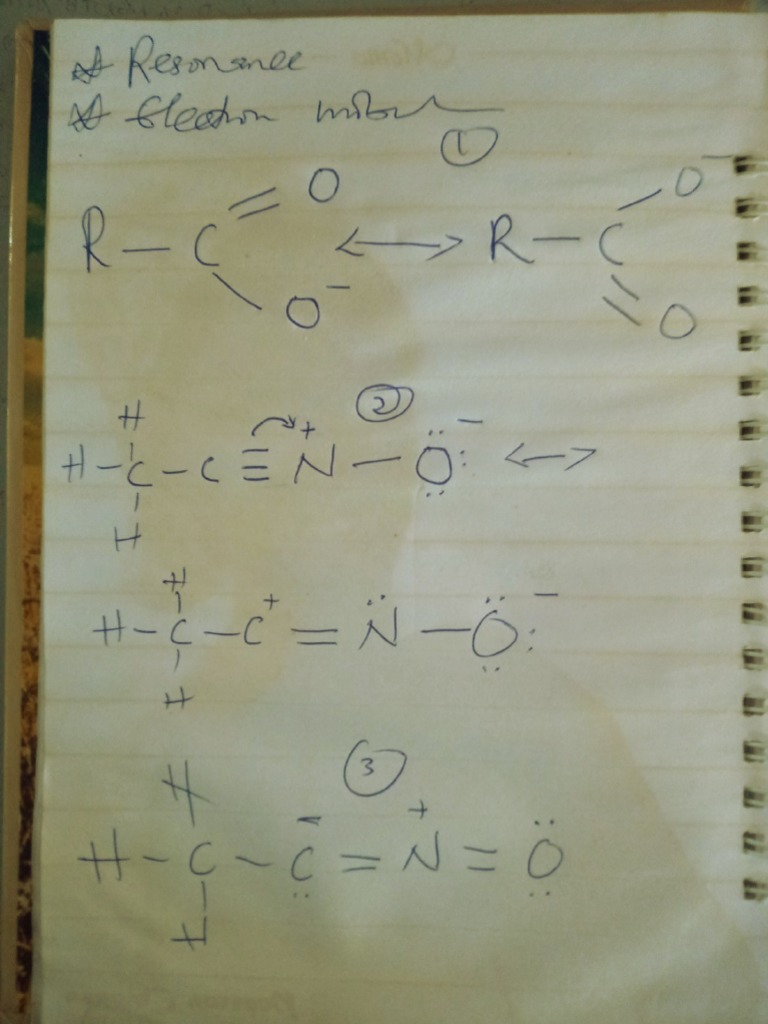 Resonance
Electron
①
R — C = O O⁻ ↔ R — C O⁻ = O
②
H
H – C – C ≡ N⁺ — Ö:⁻ ↔
H
H
H – C – C⁺ = N̈ — Ö:⁻
H
③
H
H – C – C̄ = N⁺ = Ö
H